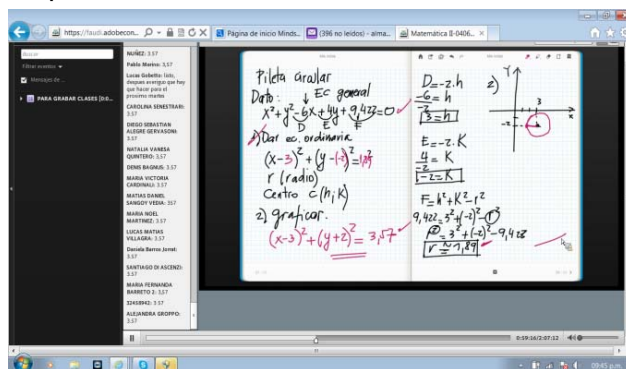 https://faudi.adobecon...
Página de inicio Minds...
(396 no leídos) - alma...
Matemática II-0406...
Buscar
Filtrar eventos
Mensajes de ...
PARA GRABAR CLASES [00...
NUÑEZ: 3.57
Pablo Marino: 3,57
CAROLINA SENESTRARI:
3.57
DIEGO SEBASTIAN
ALEGRE GERVASONI:
3.57
NATALIA VANESA
QUINTERO: 3.57
DENIS BAGNUS: 3.57
MARIA VICTORIA
CARDINALI: 3.57
MATIAS DANIEL
SANGOY VEDIA: 357
MARIA NOEL
MARTINEZ: 3.57
LUCAS MATIAS
VILLAGRA: 3.57
Daniela Barros Jornet:
3.57
SANTIAGO DI ASCENZI:
3.57
MARIA FERNANDA
BARRETO 2: 3.57
32458942: 3.57
ALEJANDRA GROPPO:
3.57
Pileta circular
Dato: ↓ Ec general
x²+y²-6x+4y+9,422=0
D E F
1) Dar ec. ordinaria
(x-3)²+(y-(-2))²=1,89²
r (radio)
Centro c(h;k)
2) graficar.
(x-3)²+(y+2)²=3,57
D=-2.h
-6/-2=h
3=h
E=-2.K
4/-2=K
-2=K
F=h²+K²-r²
9,422=3²+(-2)²-r²
r²=3²+(-2)²-9,428
r≅1,89
2)
Y
3
x
-2
0:59:16/2:07:12
09:45 p.m.